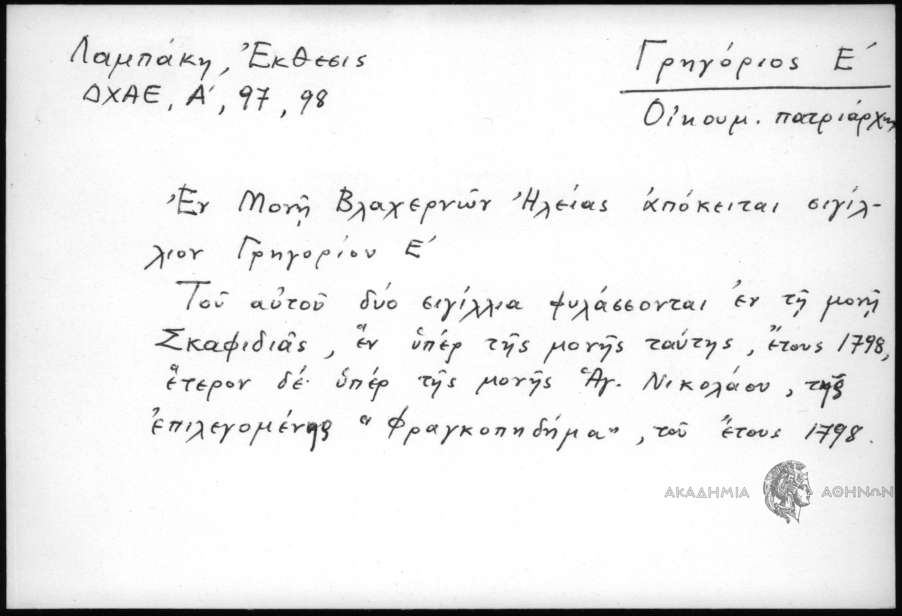 Λαμπάκη, Ἔκθεσις
ΔΧΑΕ, Α΄, 97, 98
Γρηγόριος Ε΄
Οἰκουμ. πατριάρχης
Ἐν Μονῇ Βλαχερνῶν Ἠλείας ἀπόκειται σιγίλ-
λιον Γρηγορίου Ε΄
Τοῦ αὐτοῦ δύο σιγίλλια φυλάσσονται ἐν τῇ μονῇ
Σκαφιδιᾶς, ἓν ὑπὲρ τῆς μονῆς ταύτης, ἔτους 1798,
ἕτερον δὲ ὑπὲρ τῆς μονῆς Ἁγ. Νικολάου, τῆς
ἐπιλεγομένης "Φραγκοπηδήμα", τοῦ ἔτους 1798.
ΑΚΑΔΗΜΙΑ ΑΘΗΝΩΝ